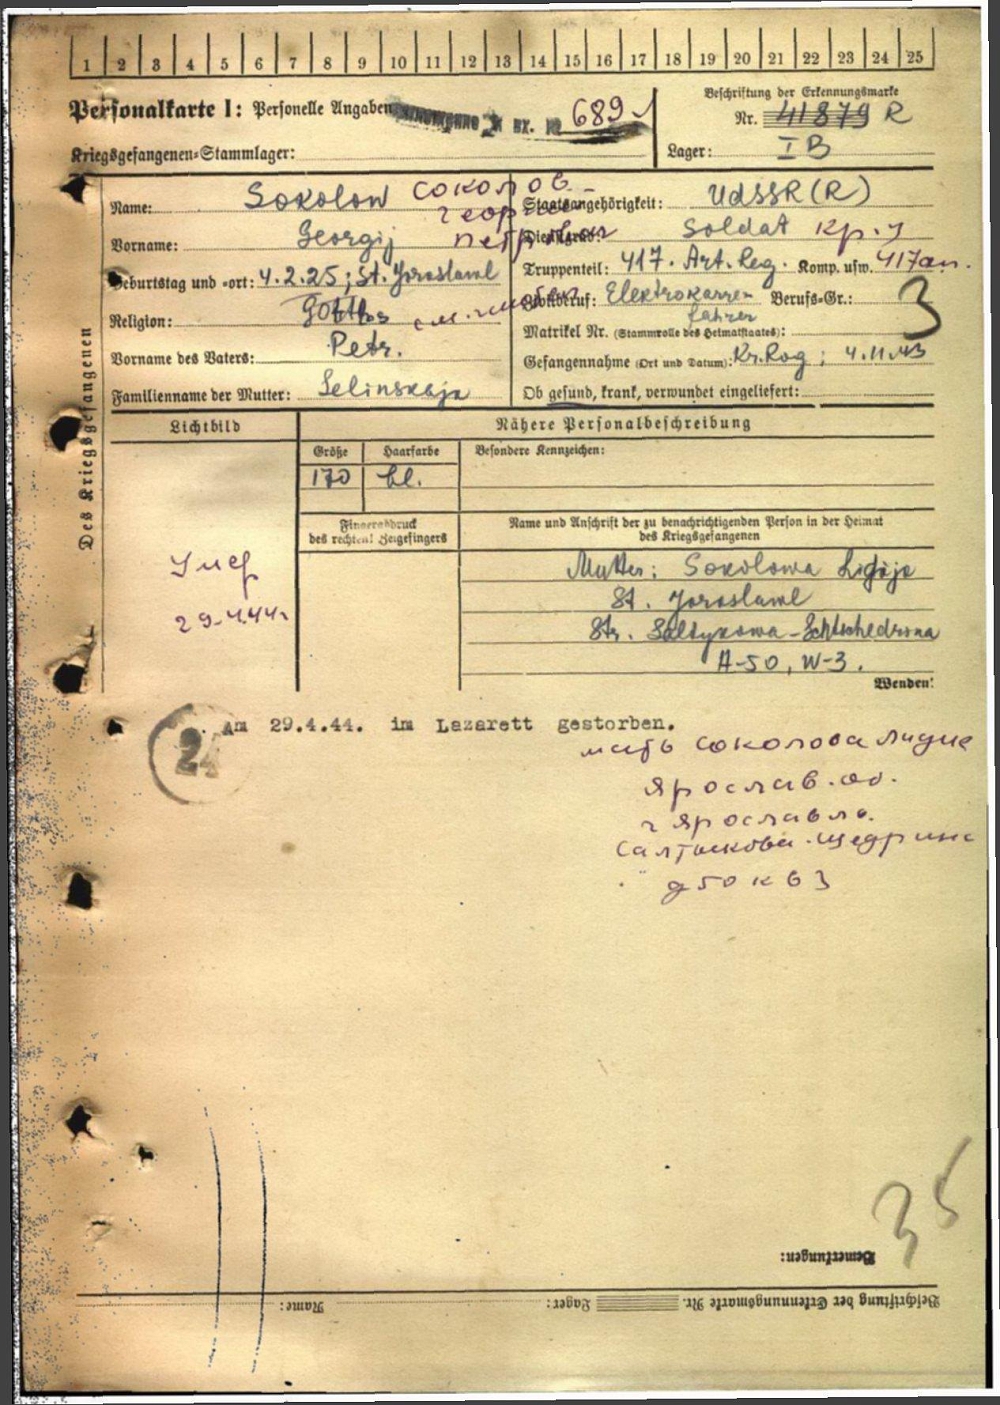 1 2 3 4 5 6 7 8 9 10 11 12 13 14 15 16 17 18 19 20 21 22 23 24 25
Personalkarte I: Personelle Angaben
689
Beschriftung der Erkennungsmarke
Nr. 41879 R
Kriegsgefangenen-Stammlager:
Lager: I B
Des Kriegsgefangenen
Name: Sokolow соколов
Staatsangehörigkeit: UdSSR (R)
георгий
Vorname: Georgij петрович
Dienstgrad: Soldat кр.
Geburtstag und -ort: 4.2.25; St. Jaroslawl
Truppenteil: 417. Art. Reg. Komp. usw. 417
Religion:
Zivilberuf: Elektrokarren fahrer Berufs-Gr.: 3
Matrikel Nr. (Stammrolle des Heimatstaates):
Vorname des Vaters: Petr.
Gefangennahme (Ort und Datum): Kr. Rog; 4.11.43
Familienname der Mutter: Selinskaja
Ob gesund, krank, verwundet eingeliefert:
Lichtbild
Nähere Personalbeschreibung
Größe Haarfarbe Besondere Kennzeichen:
170 bl.
Fingerabdruck
des rechten Zeigefingers
Name und Anschrift der zu benachrichtigenden Person in der Heimat
des Kriegsgefangenen
Умер
29.4.44г
Mutter: Sokolowa Lidija
St. Jaroslawl
Str. Saltykowa-Schtschedrina
A-50, W-3.
Wenden!
Am 29.4.44. im Lazarett gestorben.
24
мать соколова лидие
Ярослав. об.
г Ярославль.
Салтыкова-щедрина
д 50 к в 3
35
Bemerkungen:
Beschriftung der Erkennungsmarke Nr. Lager: Name: